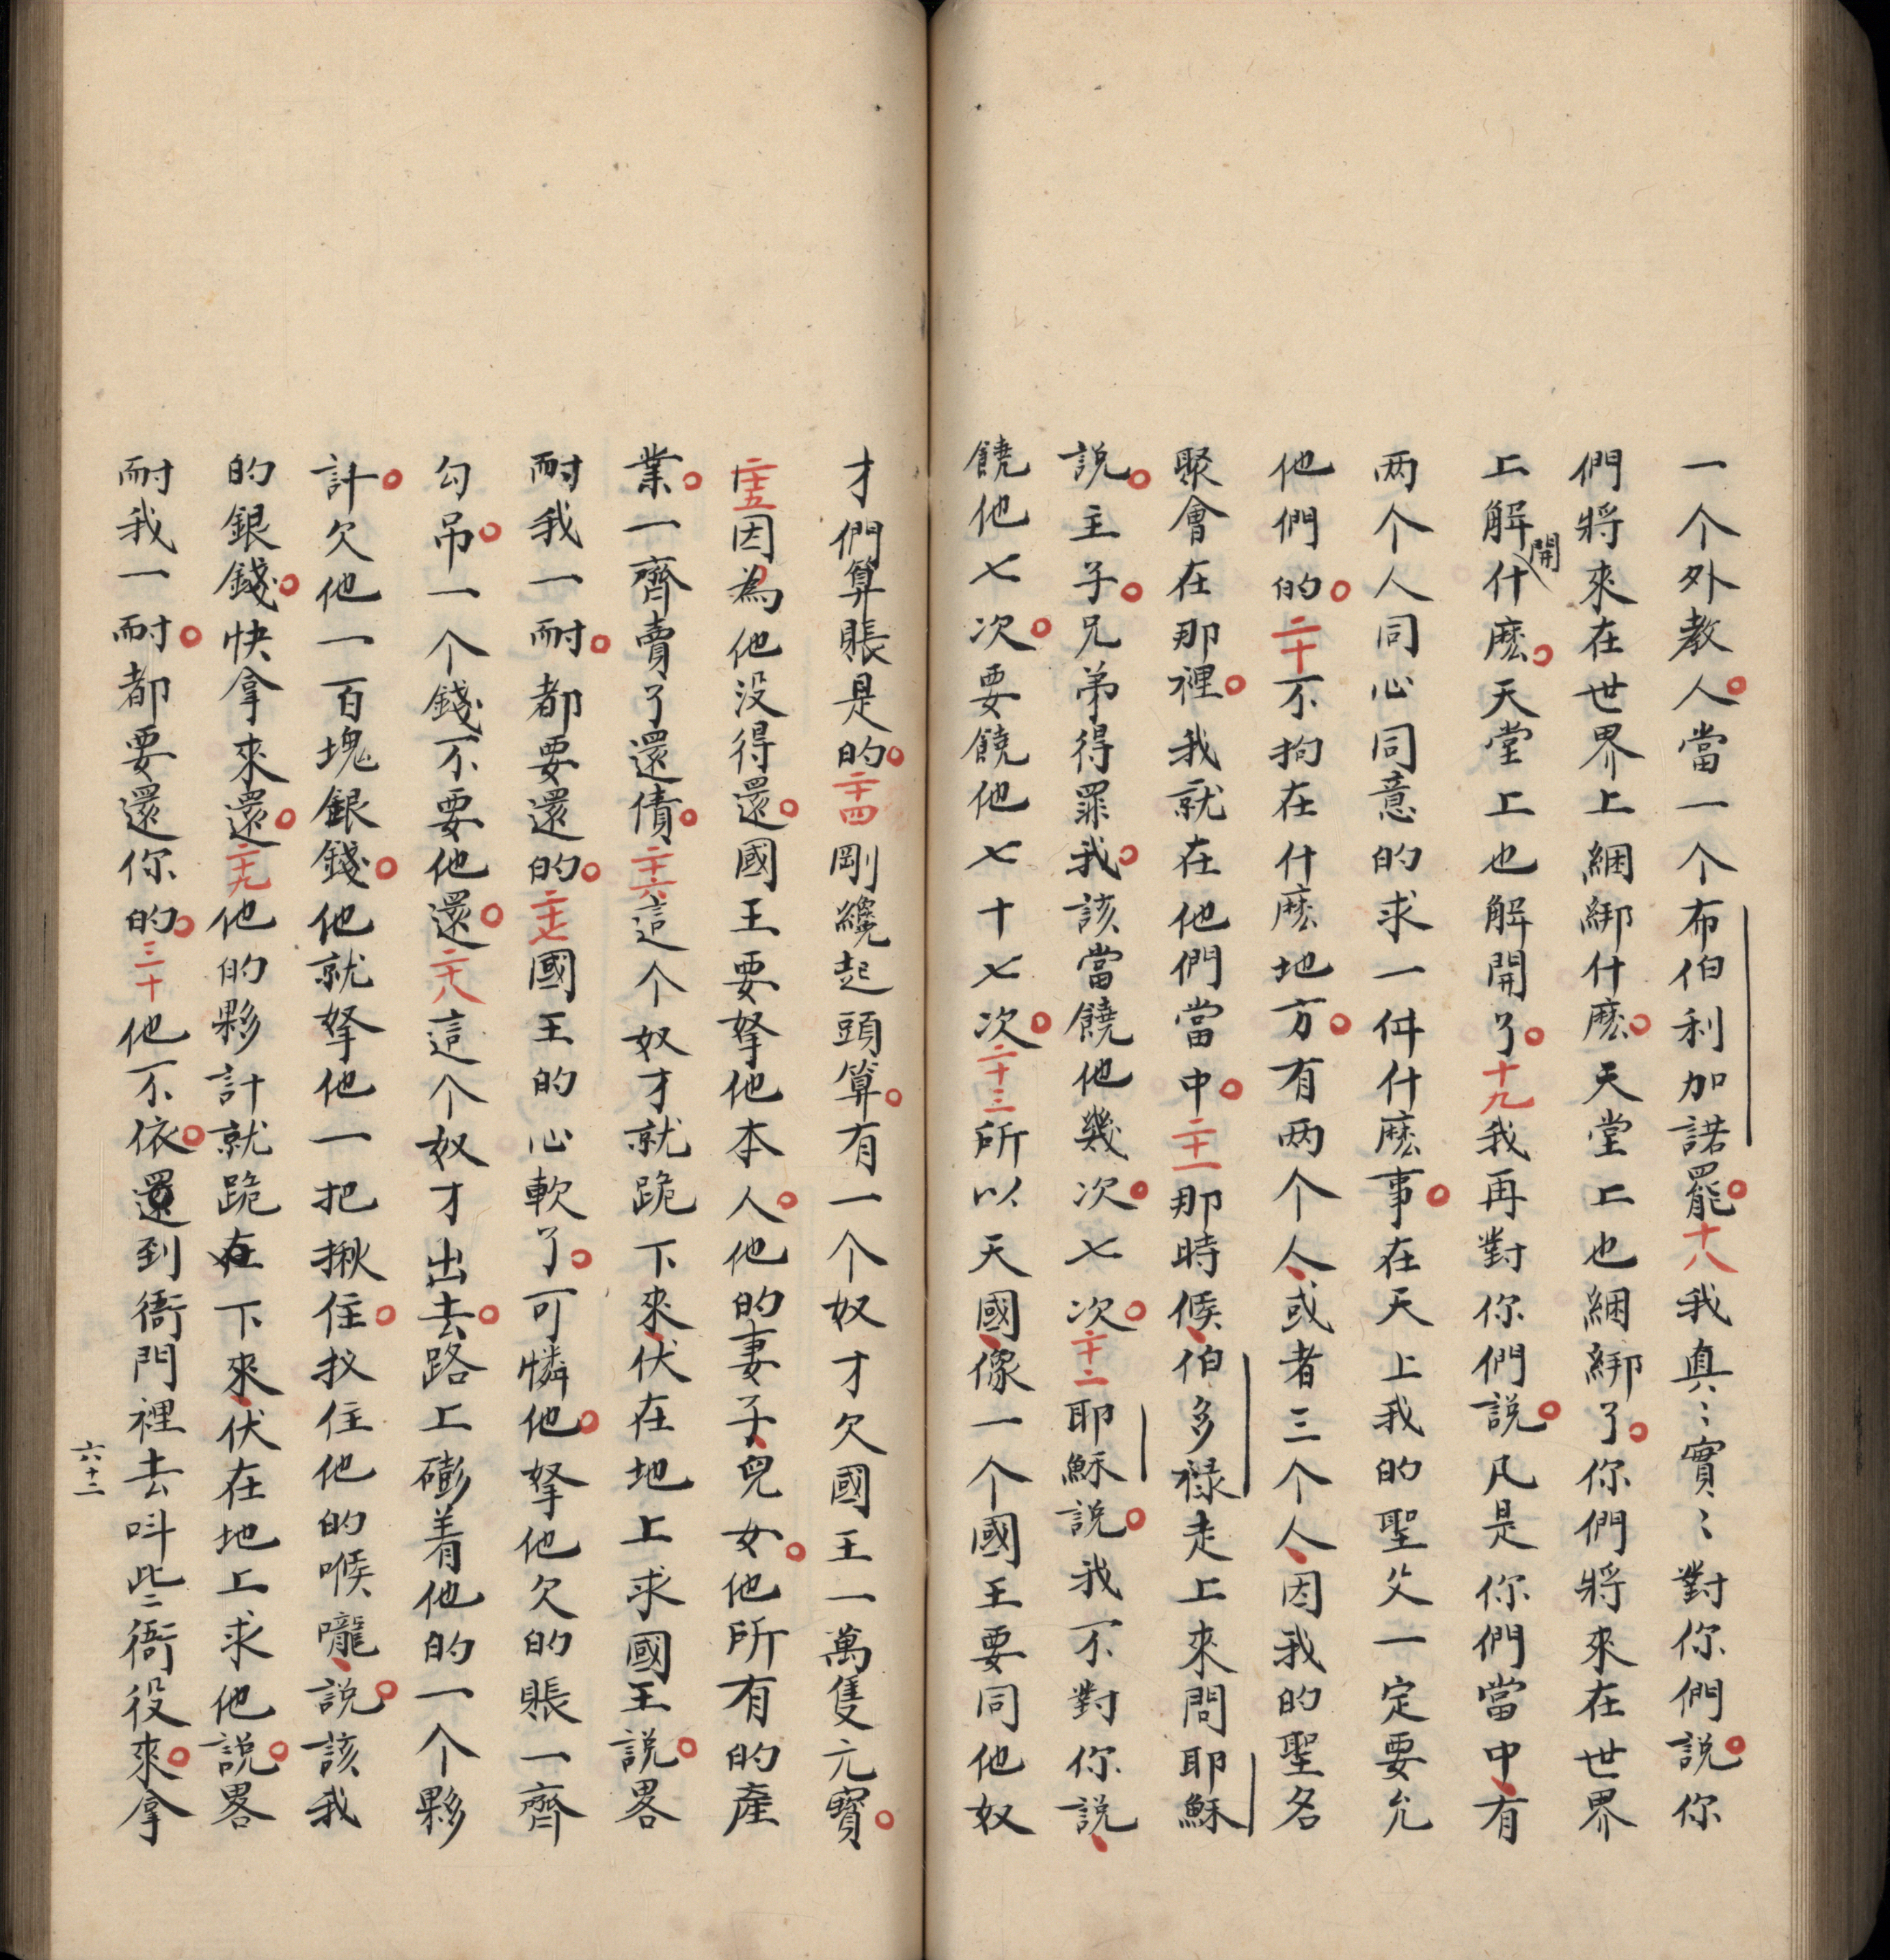 一个外教人。當一个布伯利加諾罷。十八我真〻實〻對你們說。你
們將來在世界上綑綁什麽。天堂上也綑綁了。你們將來在世界
上解開什麽。天堂上也解開了。十九我再對你們說。凡是你們當中、有
两个人同心同意的求一件什麽事。在天上我的聖父一定要允
他們的。二十不拘在什麽地方。有两个人、或者三个人、因我的聖名
聚會在那裡。我就在他們當中。二十一那時候、伯多禄走上來問耶穌
說。主子。兄弟得罪我。該當饒他幾次。七次。二十二耶穌說。我不對你說、
饒他七次。要饒他七十七次。二十三所以天國、像一个國王要同他奴
才們算賬是的。二十四剛纔起頭算。有一个奴才欠國王一萬隻元寳。
二十五因為他没得還。國王要拏他本人。他的妻子、兒女。他所有的產
業。一齊賣了還債。二十六這个奴才就跪下來、伏在地上求國王說。畧
耐我一耐。都要還的。二十七國王的心軟了。可憐他。拏他欠的賬一齊
勾吊。一个錢不要他還。二十八這个奴才出去。路上磞着他的一个夥
計。欠他一百塊銀錢。他就拏他一把揪住。扠住他的喉嚨、說。該我
的銀錢。快拿來還。二十九他的夥計就跪在下來、伏在地上求他說。畧
耐我一耐。都要還你的。三十他不依。還到衙門裡去呌些衙役來。拿
六十二